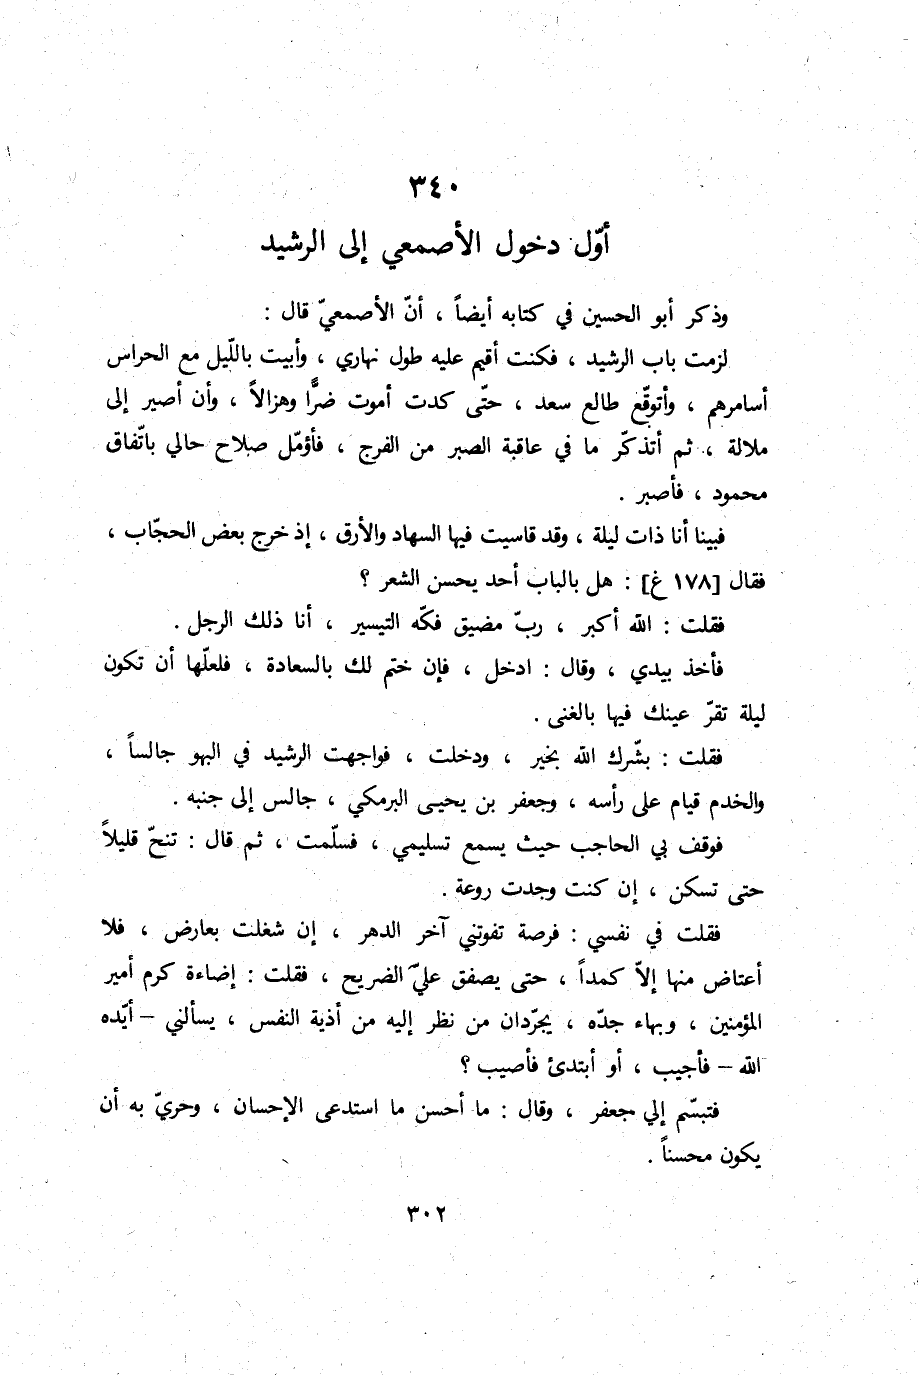 ٣٤٠
أوّل دخول الأصمعي إلى الرشيد
وذكر أبو الحسين في كتابه أيضاً ، أنّ الأصمعيّ قال :
لزمت باب الرشيد ، فكنت أقيم عليه طول نهاري ، وأبيت باللّيل مع الحراس
أسامرهم ، وأتوقّع طالع سعد ، حتّى كدت أموت ضرًّا وهزالاً ، وأن أصير إلى
ملالة ، ثم أتذكّر ما في عاقبة الصبر من الفرج ، فأؤمّل صلاح حالي باتّفاق
محمود ، فأصبر .
فبينا أنا ذات ليلة ، وقد قاسيت فيها السهاد والأرق ، إذ خرج بعض الحجّاب ،
فقال [١٧٨ غ] : هل بالباب أحد يحسن الشعر ؟
فقلت : الله أكبر ، ربّ مضيق فكّه التيسير ، أنا ذلك الرجل .
فأخذ بيدي ، وقال : ادخل ، فإن ختم لك بالسعادة ، فلعلّها أن تكون
ليلة تقرّ عينك فيها بالغنى .
فقلت : بشّرك الله بخير ، ودخلت ، فواجهت الرشيد في البهو جالساً ،
والخدم قيام على رأسه ، وجعفر بن يحيى البرمكي ، جالس إلى جنبه .
فوقف بي الحاجب حيث يسمع تسليمي ، فسلّمت ، ثم قال : تنحّ قليلاً
حتى تسكن ، إن كنت وجدت روعة .
فقلت في نفسي : فرصة تفوتني آخر الدهر ، إن شغلت بعارض ، فلا
أعتاض منها إلاّ كمداً ، حتى يصفق عليّ الضريح ، فقلت : إضاءة كرم أمير
المؤمنين ، وبهاء جدّه ، يجرّدان من نظر إليه من أذية النفس ، يسألني – أيّده
الله – فأجيب ، أو أبتدئ فأصيب ؟
فتبسّم إلي جعفر ، وقال : ما أحسن ما استدعى الإحسان ، وحريّ به أن
يكون محسناً .
٣٠٢